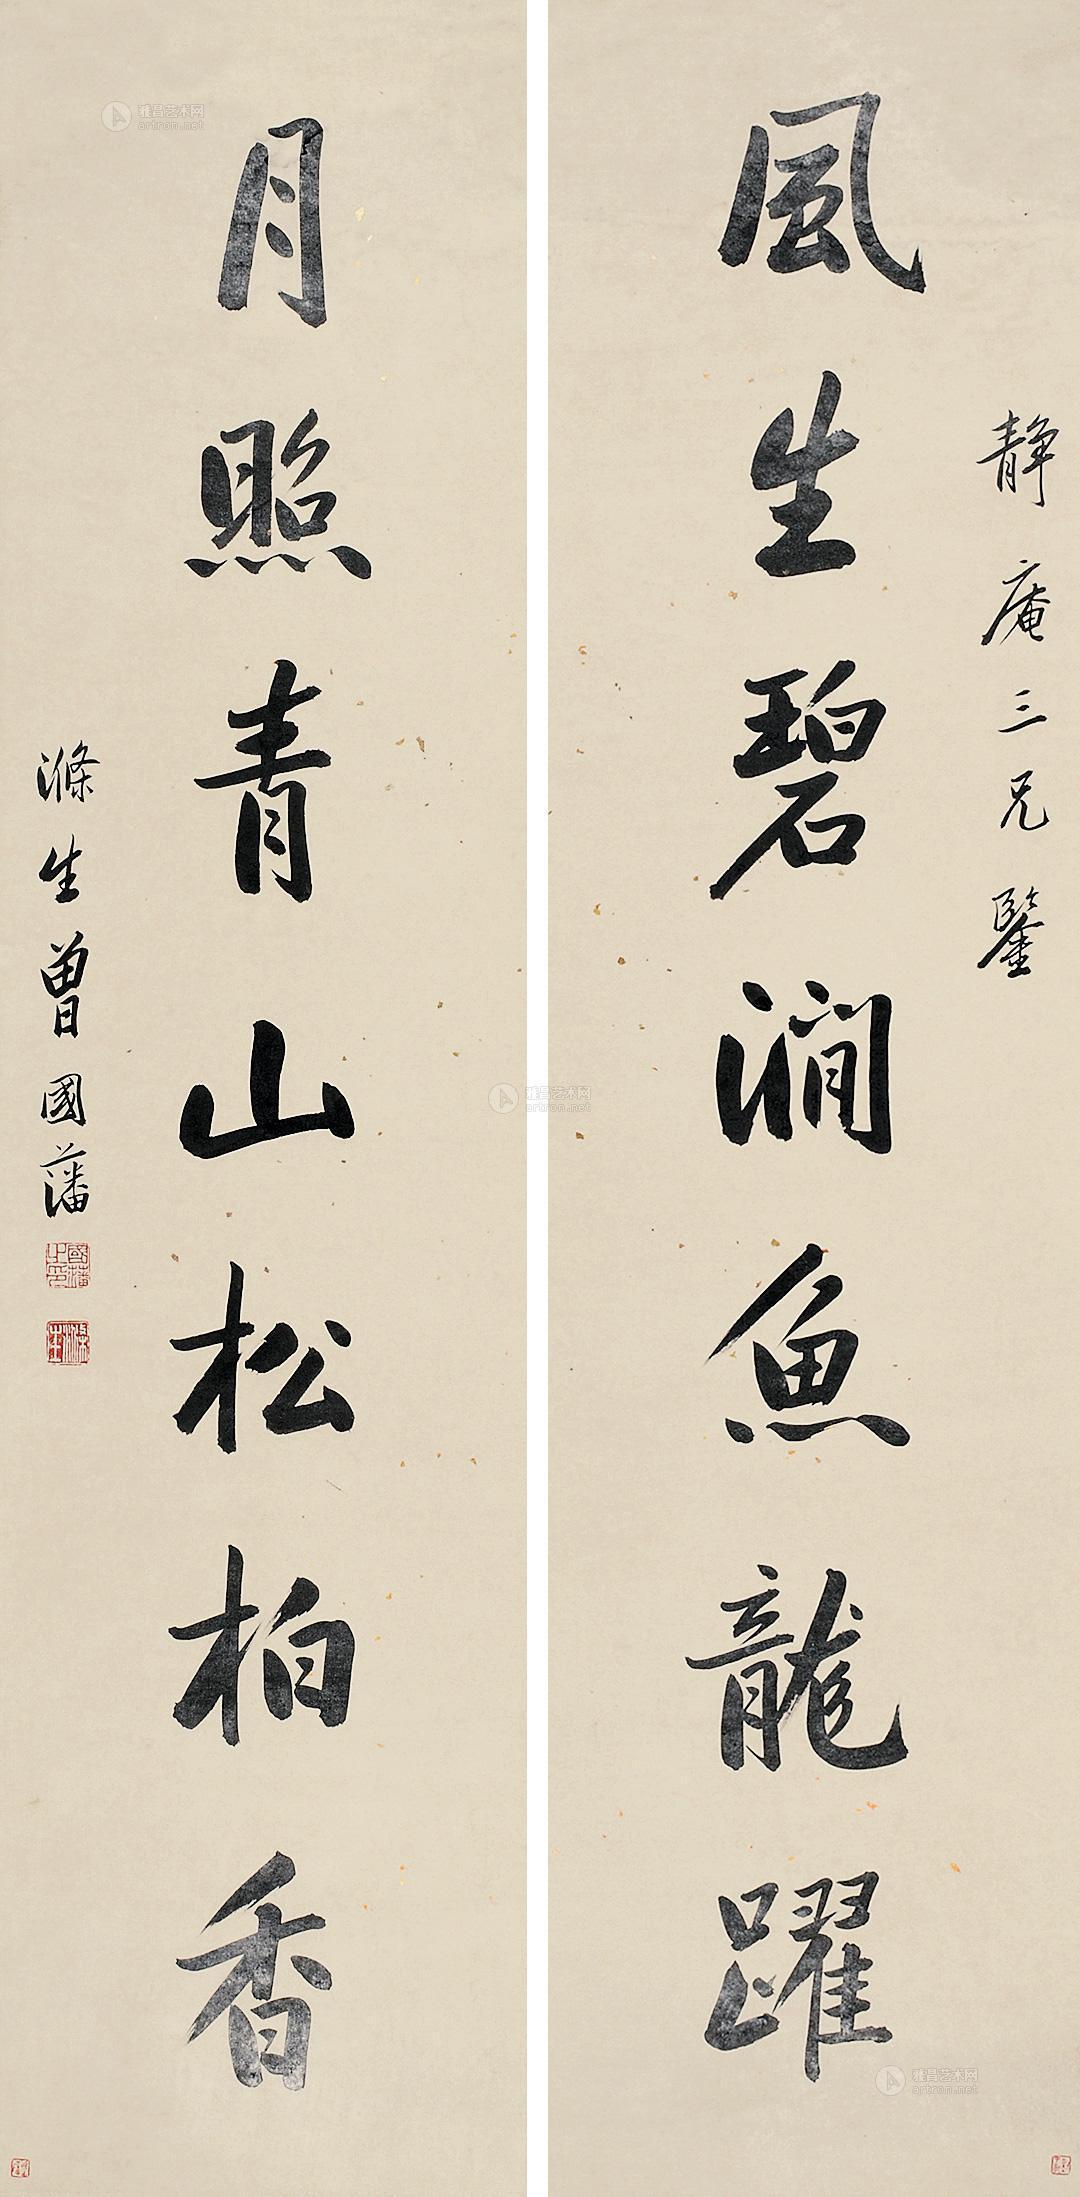 靜庵三兄鑒
風生碧澗魚龍躍
月照青山松柏香
滌生曾國藩
國藩之印
滌生
雅昌艺术网
artron.net
雅昌艺术网
artron.net
雅昌艺术网
artron.net